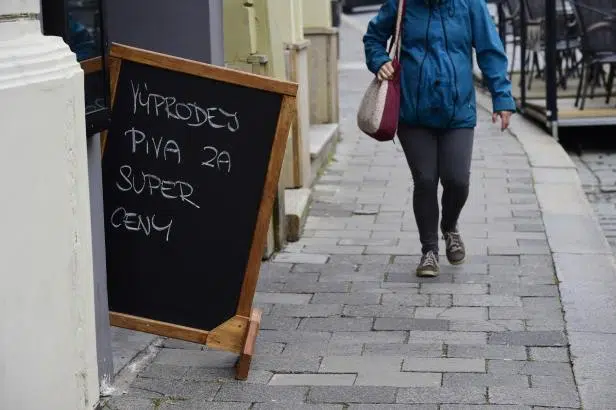 VÝPRODEJ
PIVA ZA
SUPER
CENY